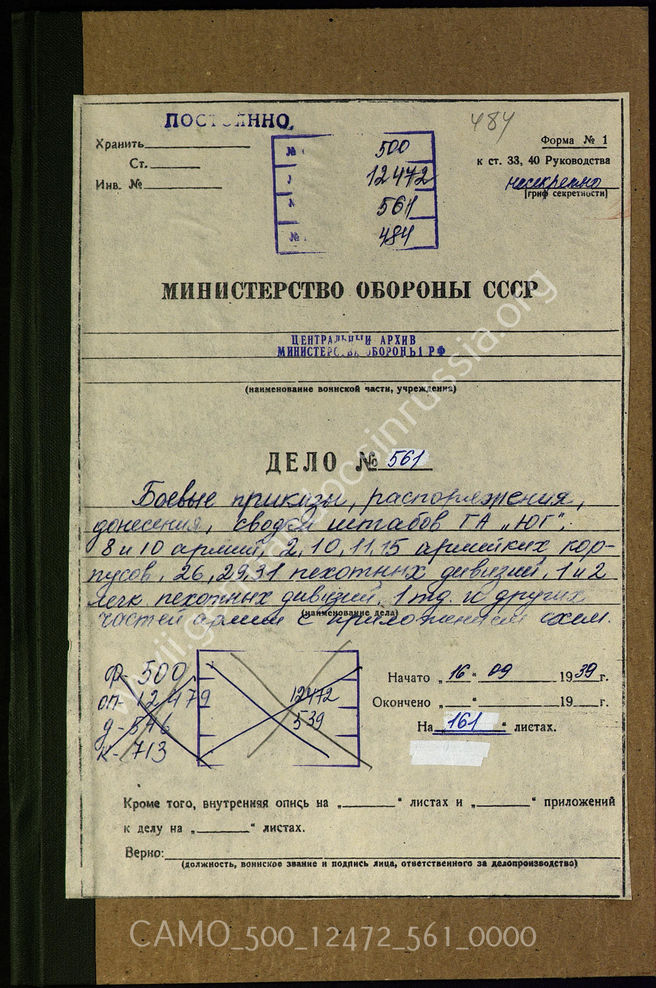 ПОСТОЯННО
484
Хранить
Форма № 1
Ст.
к ст. 33, 40 Руководства
Инв. №
несекретно
(гриф секретности)
№ 500
12472
561
№ 484
МИНИСТЕРСТВО ОБОРОНЫ СССР
ЦЕНТРАЛЬНЫЙ АРХИВ
МИНИСТЕРСТВА ОБОРОНЫ РФ
(наименование воинской части, учреждения)
ДЕЛО № 561
Боевые приказы, распоряжения,
донесения, сводки штабов ГА „ЮГ".
8 и 10 армий, 2, 10, 11, 15 армейких кор-
пусов, 26, 29, 31 пехотных дивизий, 1 и 2
легк. пехотных дивизий, 1 тд. и других
(наименование дела)
частей армии с приложением схем.
ф- 500
оп- 12479
д- 546
к- 713
12472
539
Начато „16" 09 1939 г.
Окончено „ " 19 г.
На „161" листах.
Кроме того, внутренняя опись на „ " листах и „ " приложений
к делу на „ " листах.
Верно:
(должность, воинское звание и подпись лица, ответственного за делопроизводство)
CAMO_500_12472_561_0000